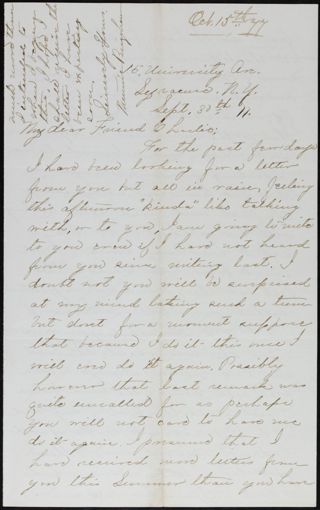 Oct. 15th 77
15. University Av.
Syracuse. N.Y.
Sept. 30th 77.
My dear Friend Charlie;
For the past few days
I have been looking for a letter
from you but all in vain, feeling
this afternoon "kinda" like talking
with, or to you, I am going to write
to you even if I have not heard
from you since writing last. I
doubt not you will be surprised
at my mind taking such a turn
but don't for a moment suppose
that because I do it this once I
will ever do it again. Possibly
however that last remark was
quite uncalled for as perhaps
you will not care to have me
do it again. I presume that I
have received more letters from
you this Summer than you have
much more than
I intended to
when I began
that I hope
I shall receive the
letter I have
been expecting
soon.
Sincerely Yours